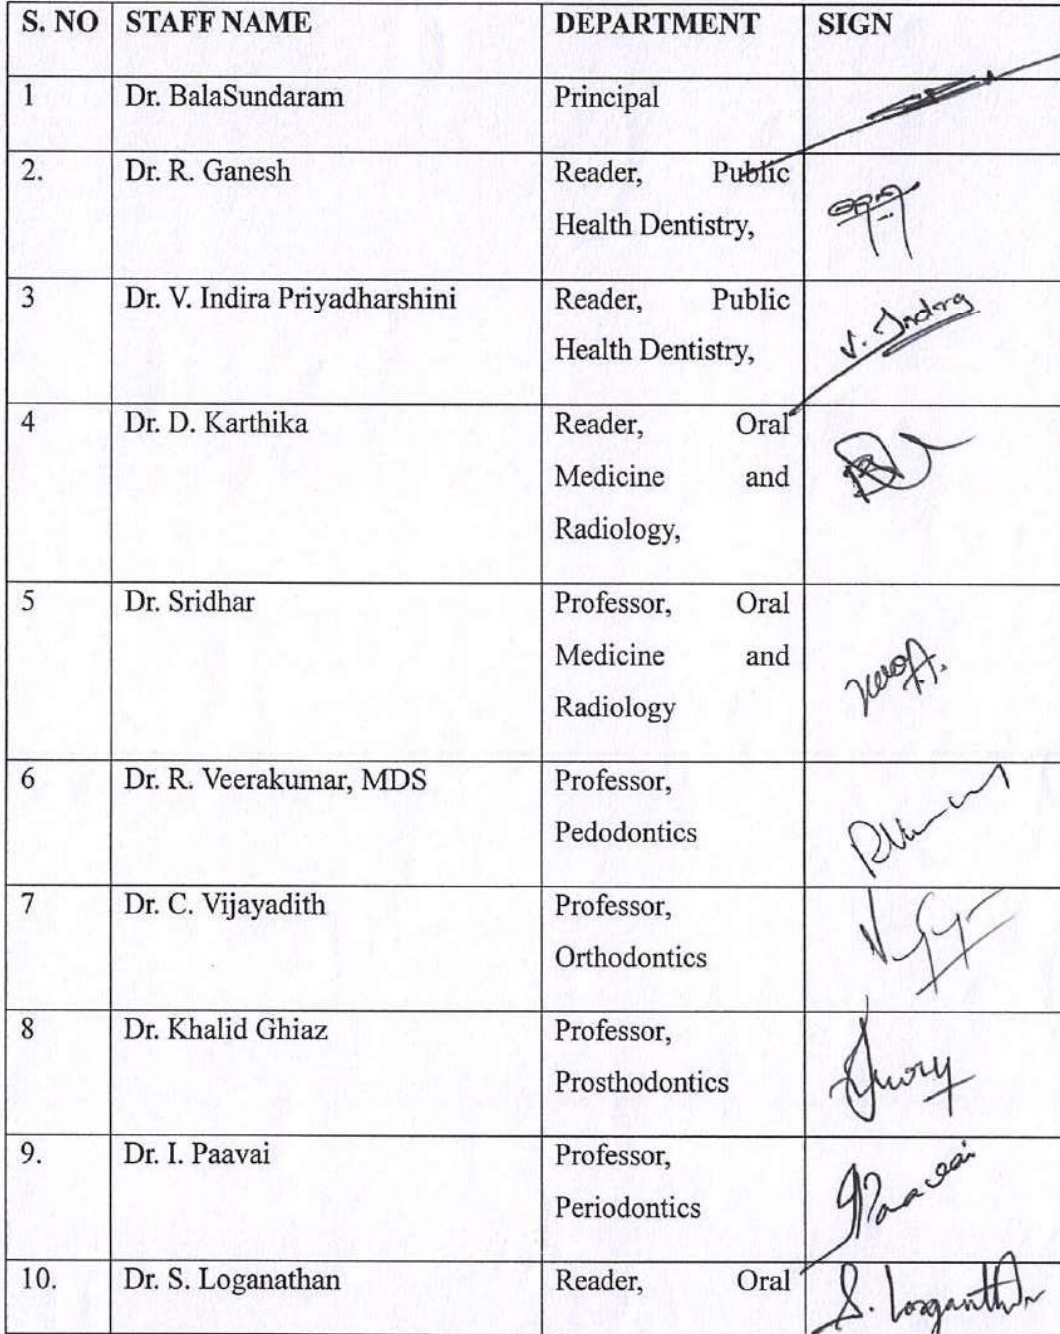 S. NO STAFF NAME DEPARTMENT SIGN
1 Dr. BalaSundaram Principal
2. Dr. R. Ganesh Reader, Public
Health Dentistry,
3 Dr. V. Indira Priyadharshini Reader, Public
Health Dentistry, V. Indira
4 Dr. D. Karthika Reader, Oral
Medicine and
Radiology,
5 Dr. Sridhar Professor, Oral
Medicine and
Radiology
6 Dr. R. Veerakumar, MDS Professor,
Pedodontics
7 Dr. C. Vijayadith Professor,
Orthodontics
8 Dr. Khalid Ghiaz Professor,
Prosthodontics
9. Dr. I. Paavai Professor,
Periodontics I Paavai
10. Dr. S. Loganathan Reader, Oral S. Loganathan